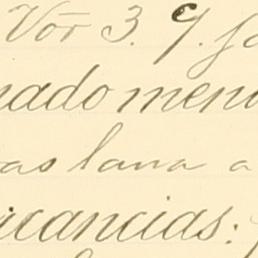 Vor 3. 9.
nado men
as lana a
icancias: